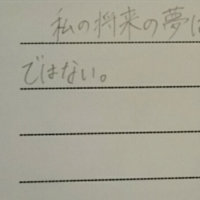 私の将来の夢は
ではない。